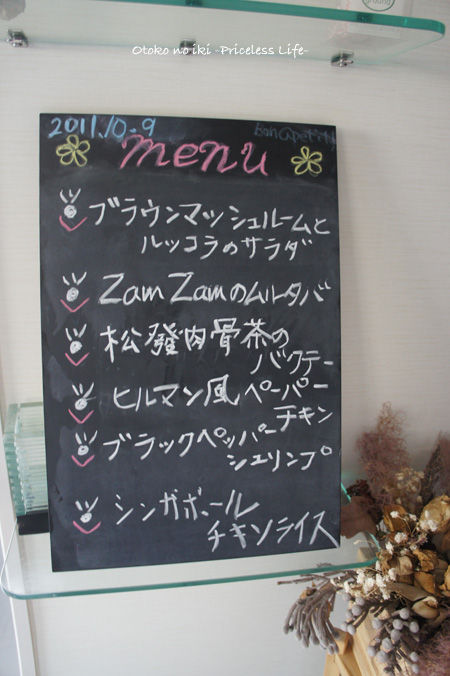 Otoko no iki -Priceless Life-
2011.10.9
menu
ブラウンマッシュルームと
ルッコラのサラダ
Zam Zamのムルタバ
松發肉骨茶の
バクテー
ヒルマン風ペーパー
チキン
ブラックペッパー
シュリンプ
シンガポール
チキンライス